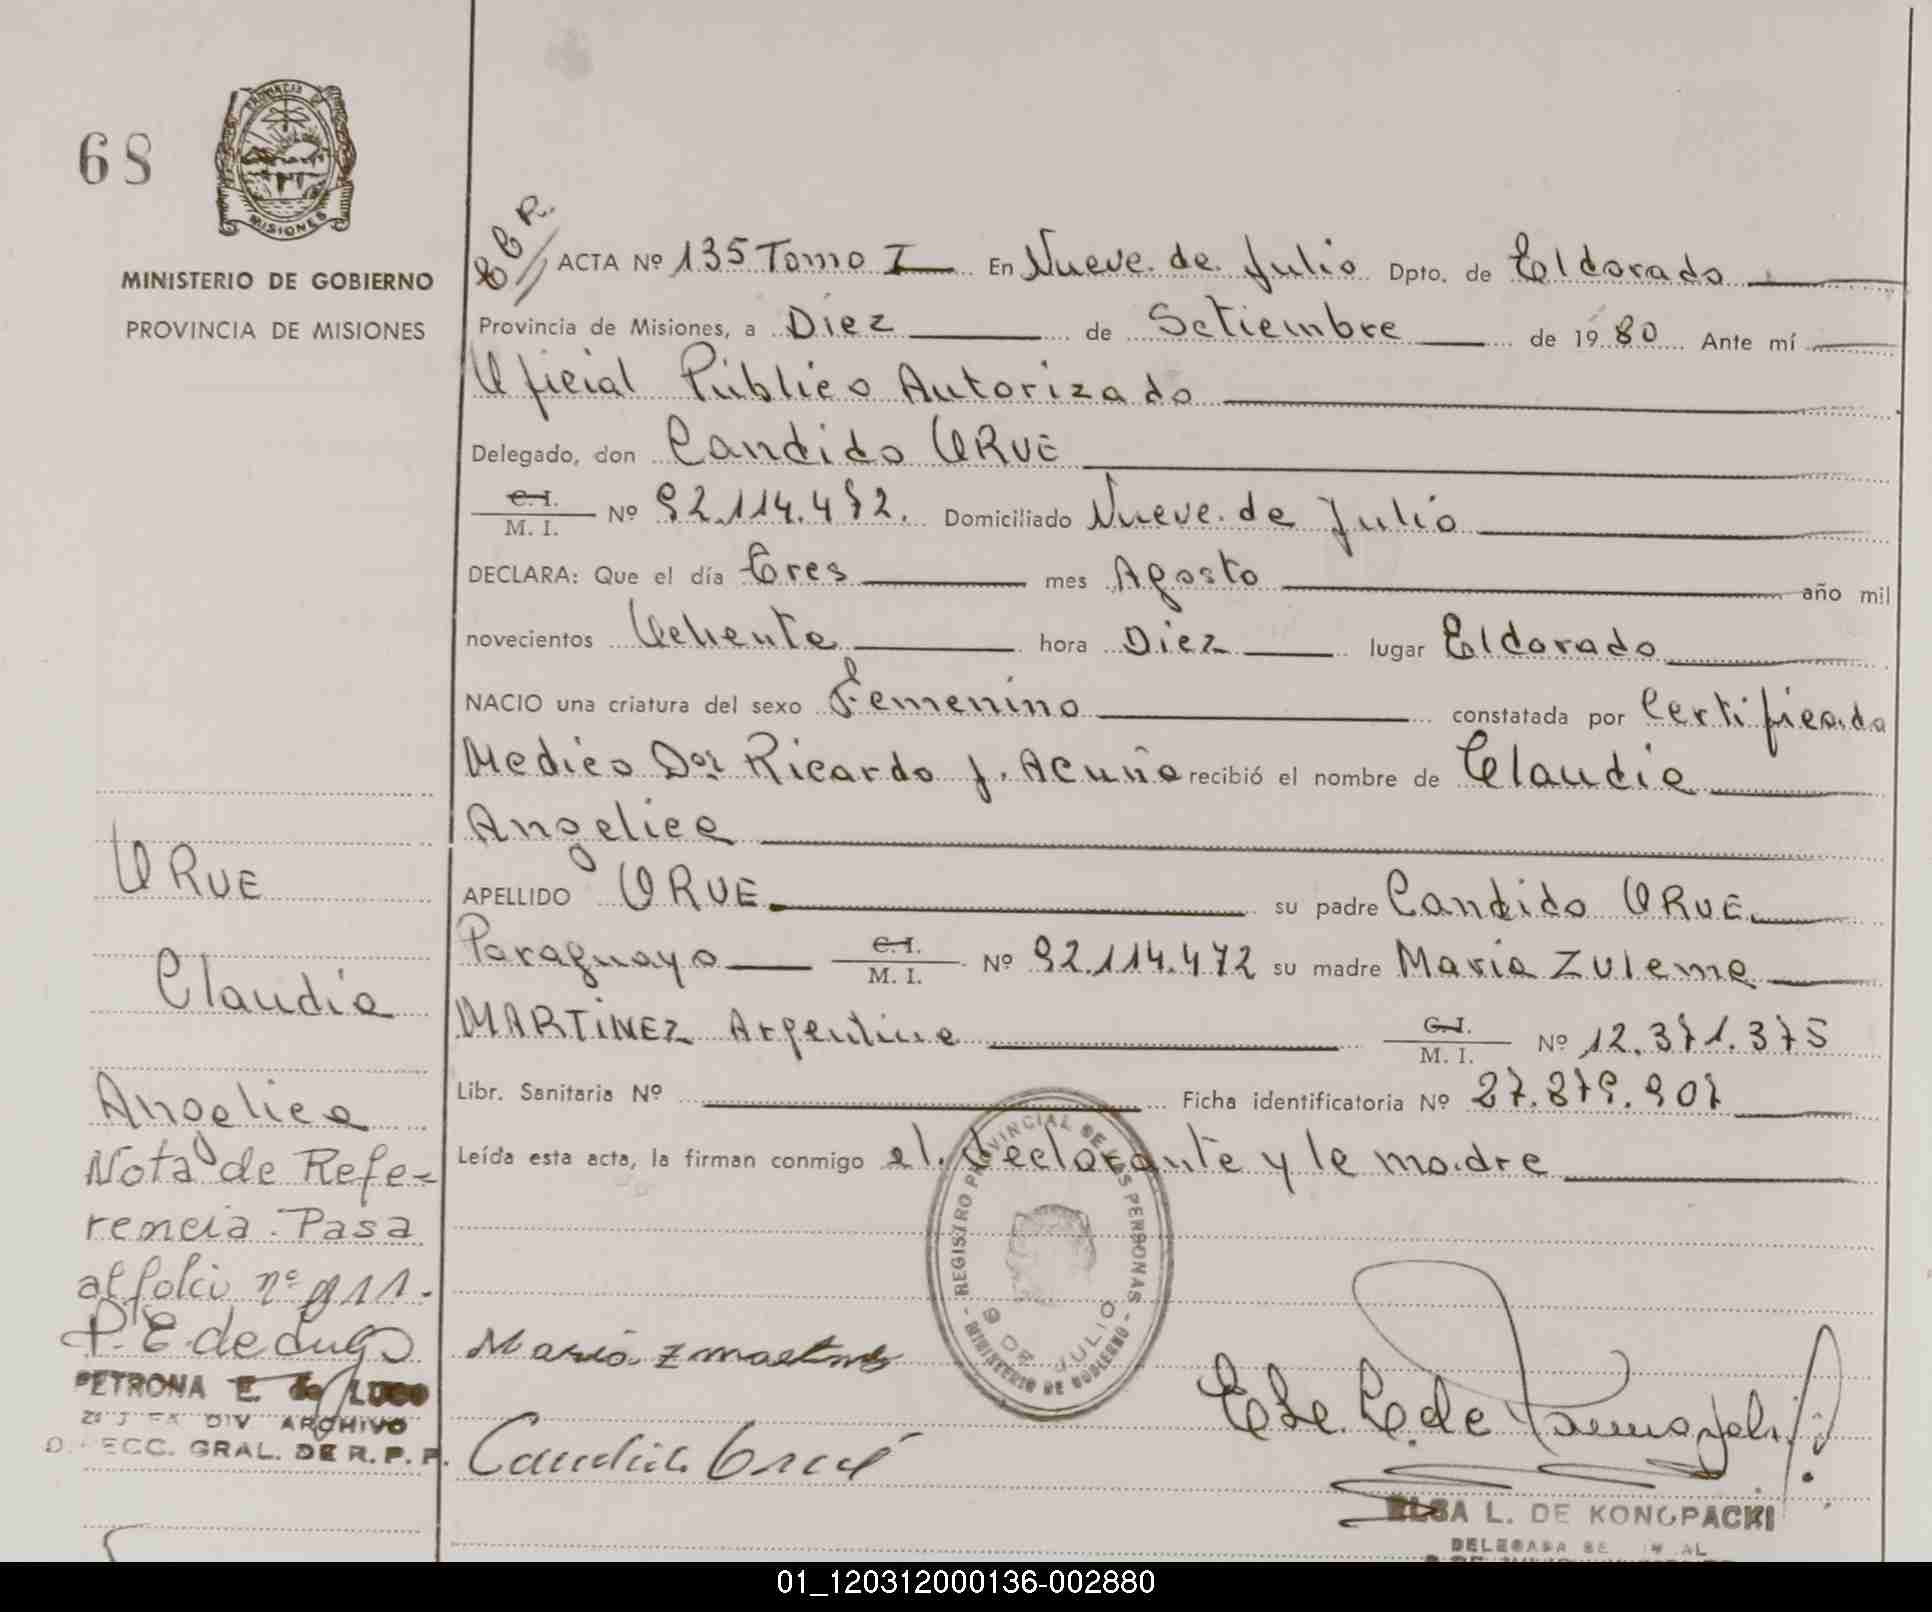 68
PROVINCIA DE
MISIONES
MINISTERIO DE GOBIERNO
PROVINCIA DE MISIONES
ACTA Nº 135 Tomo I En Nueve de Julio Dpto. de Eldorado
Provincia de Misiones, a Diez de Setiembre de 1980 Ante mí
Oficial Público Autorizado
Delegado, don Candido URUE
C. I.
M. I. Nº 92.114.472. Domiciliado Nueve de Julio
DECLARA: Que el día Tres mes Agosto año mil
novecientos Ochenta hora Diez lugar Eldorado
NACIO una criatura del sexo Femenino constatada por Certificado
Medico Dor Ricardo J. Acuña recibió el nombre de Claudia
Angelica
APELLIDO URUE su padre Candido URUE
Paraguayo C. I.
M. I. Nº 92.114.472 su madre Maria Zulema
MARTiNEZ Argentina C. I.
M. I. Nº 12.371.375
Libr. Sanitaria Nº Ficha identificatoria Nº 27.879.907
Leída esta acta, la firman conmigo el declarante y la madre
URUE
Claudia
Angelica
Nota de Refe-
rencia. Pasa
al folio nº 911.
P. E. de Lugo
PETRONA E. de LUGO
DIV ARCHIVO
GRAL. DE R. P. P.
REGISTRO PROVINCIAL DE LAS PERSONAS
9 DE JULIO
MINISTERIO DE GOBIERNO
Maria Z Martinez
Candido Urué
ELSA L. DE KONOPACKI
01_120312000136-002880